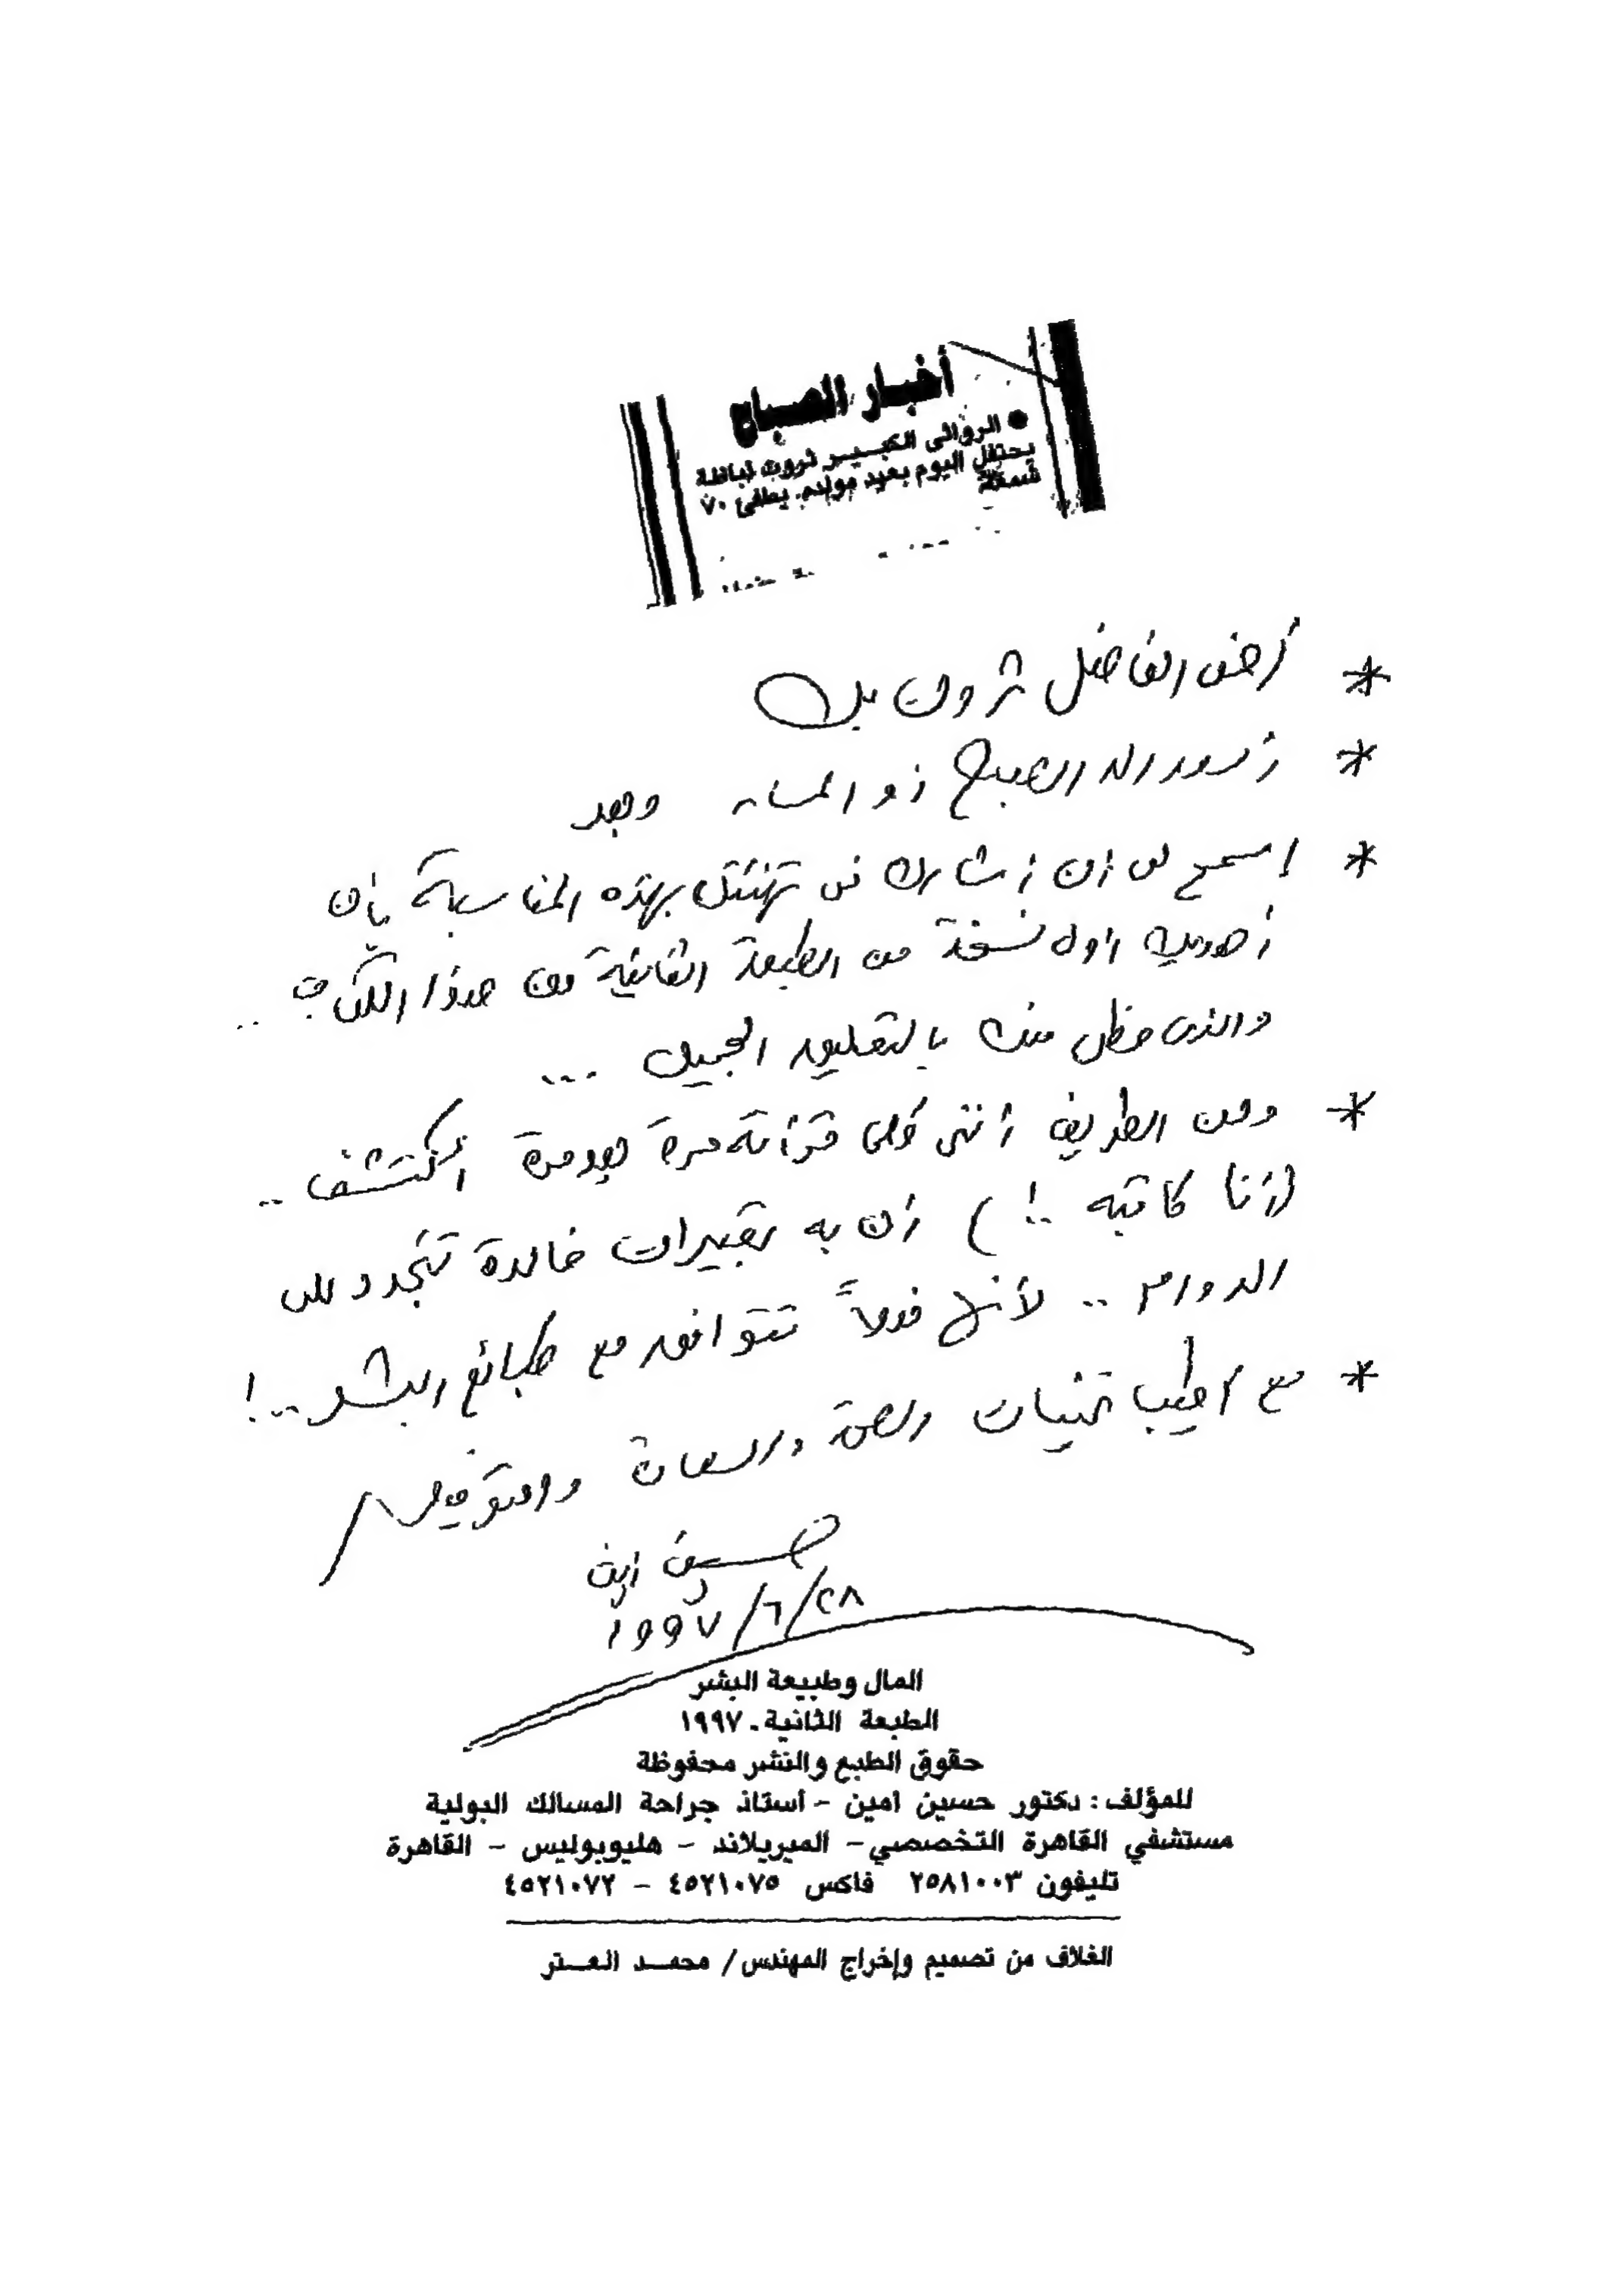 أخبار الصباح
● الروائى الكبير ثروت أباظة
يحتفل اليوم بعيد مولده. يطفئ ٧٠
شمعة
* أخى الفاضل ثروت بك
* أسعد الله الصباح أو المساء وبعد
* إسمح لى أن أشارك فى تهنئتك بهذه المناسبة بأن
أهديك أول نسخة من الطبعة الثانية من هذا الكتاب ..
والذى حظى منك بالتعليق الجميل ...
* ومن الطريف أننى كلما قرأته مرة بعد مرة أكتشف ..
(أنا كاتبه ..! ) أن به تعبيرات خالدة تتجدد على
الدوام .. لأنها فعلاً تتوافق مع طبائع البشر ..!
* مع أطيب تمنيات الصحة والسعادة والتوفيق
حسين أمين
١٩٩٧/٦/٢٨
المال وطبيعة البشر
الطبعة الثانية - ١٩٩٧
حقوق الطبع والنشر محفوظة
للمؤلف : دكتور حسين أمين - أستاذ جراحة المسالك البولية
مستشفي القاهرة التخصصي - الميريلاند - هليوبوليس - القاهرة
تليفون ٢٥٨١٠٠٣ فاكس ٤٥٢١٠٧٥ - ٤٥٢١٠٧٢
الغلاف من تصميم وإخراج المهندس / محمد العتر